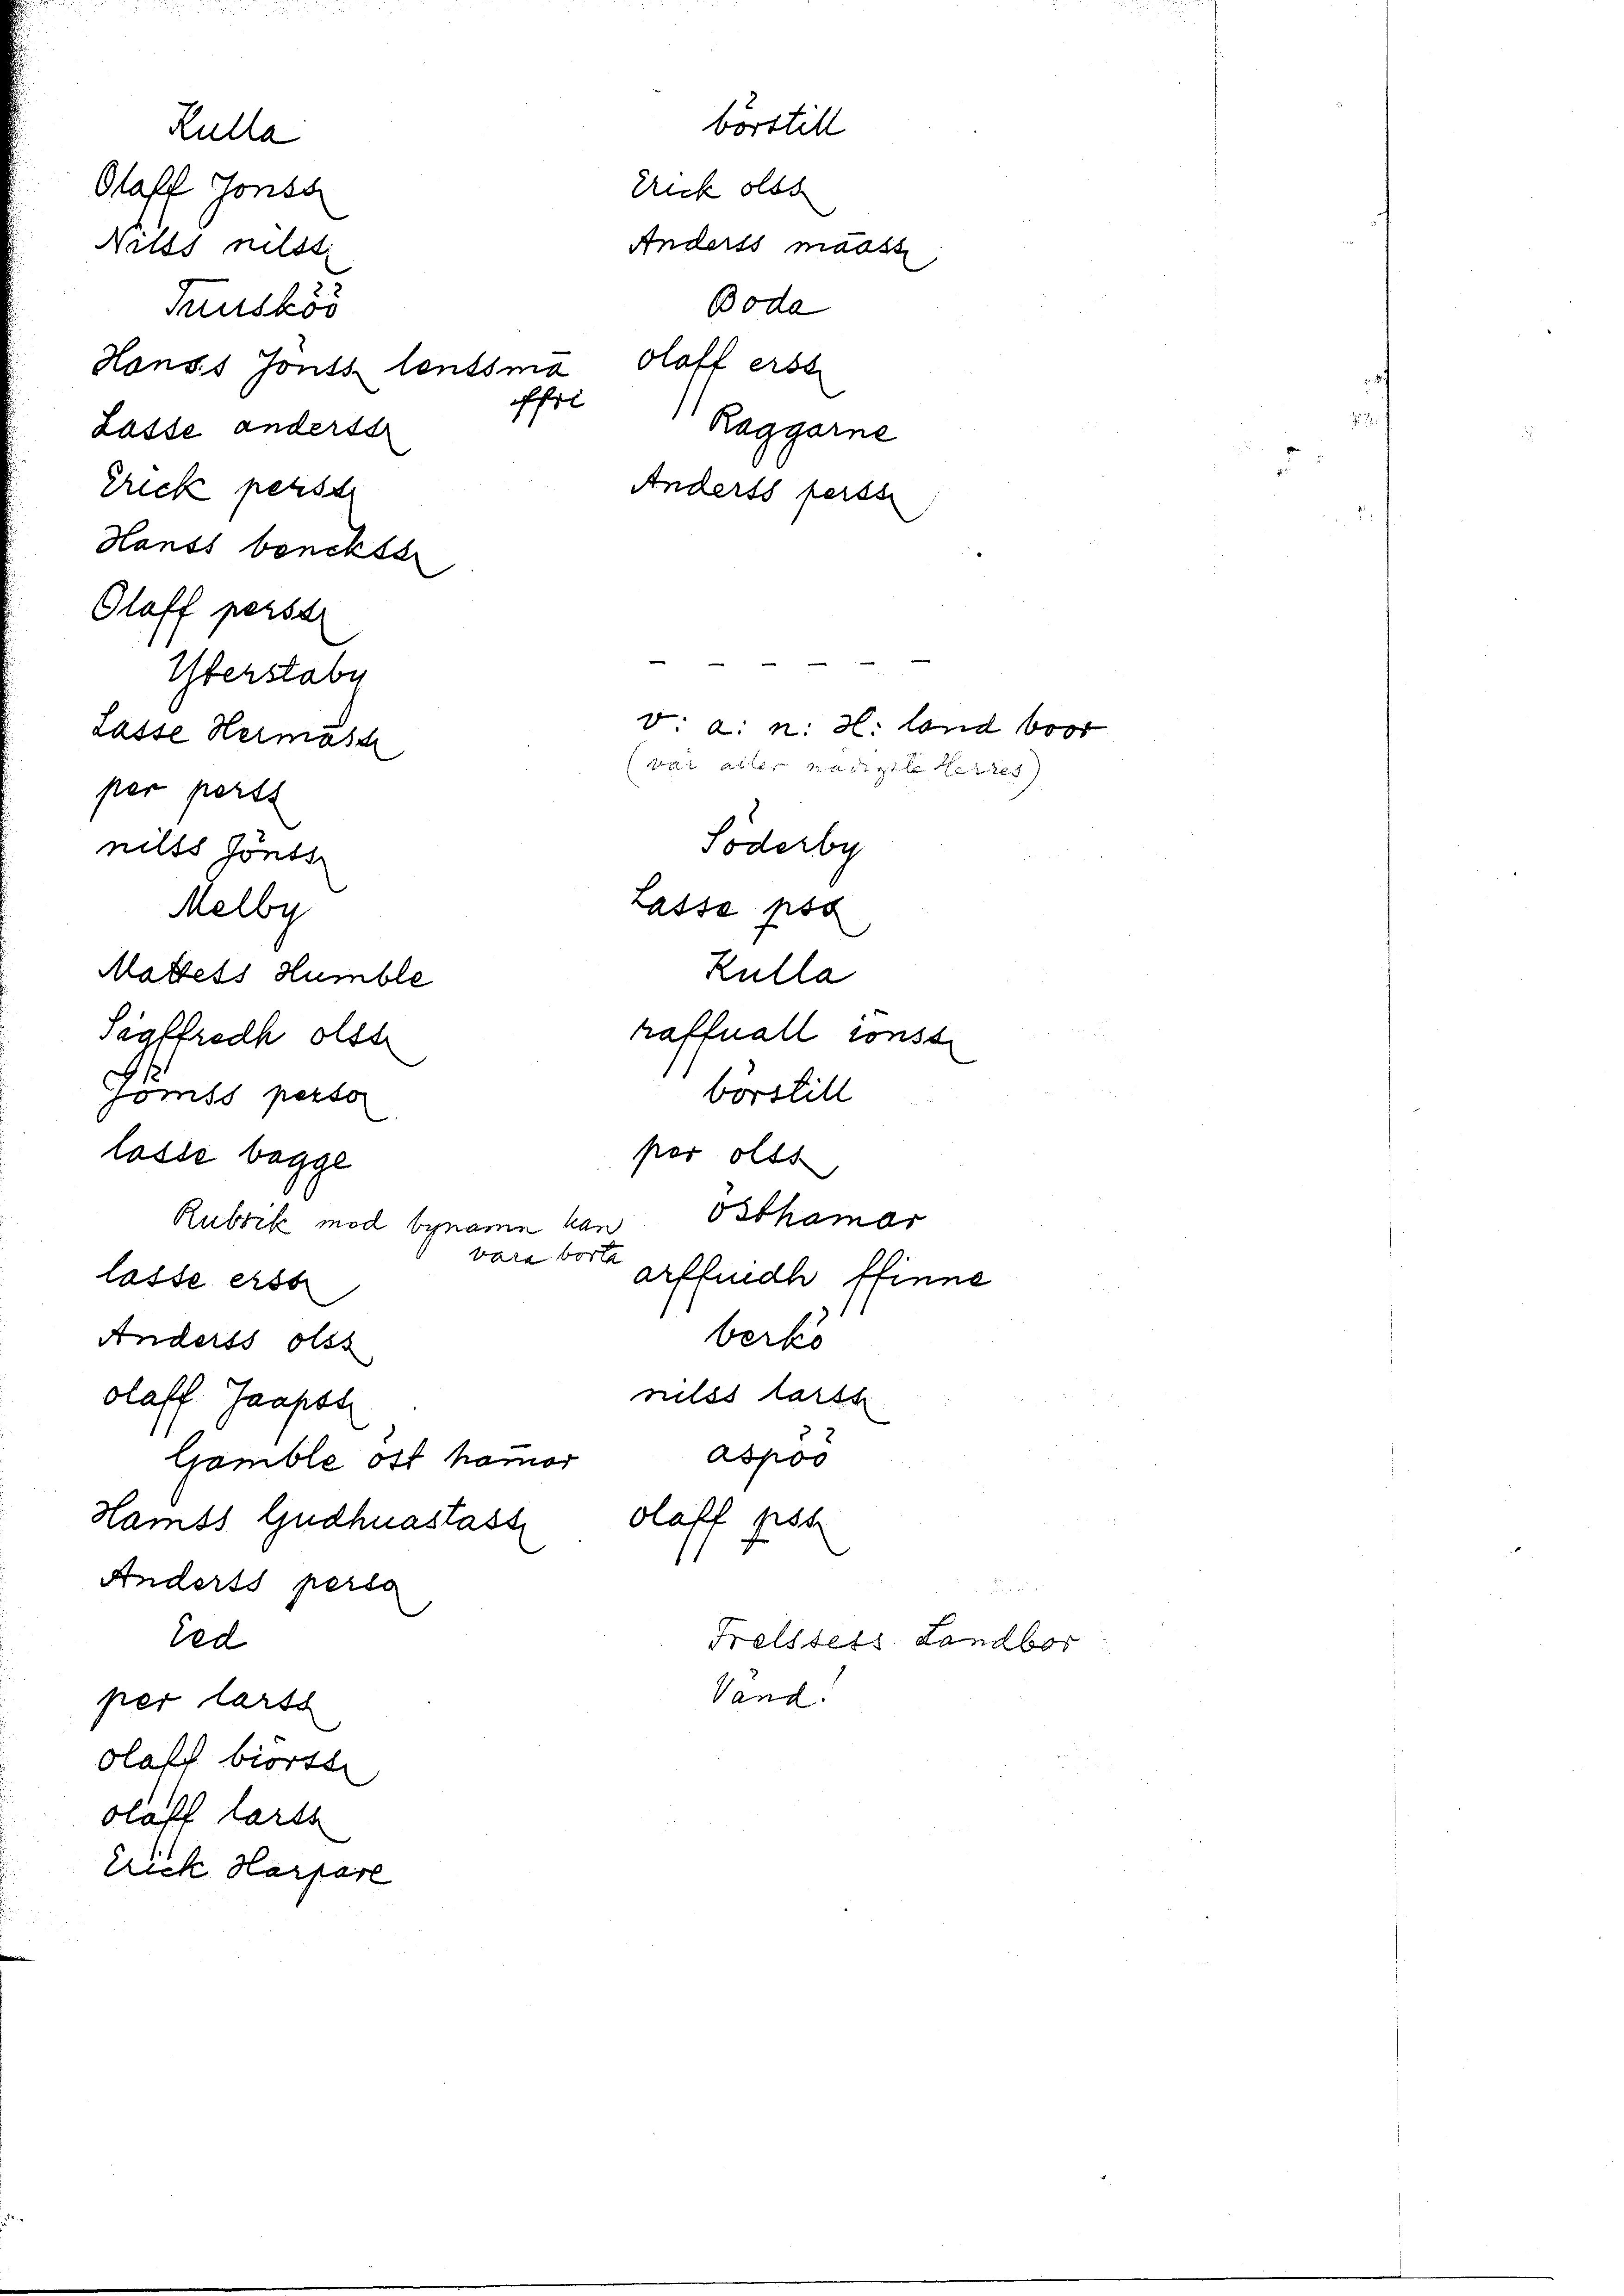 Kulla
Olaff Jonss
Nilss nilss
Tuusköö
Hanss Jönss lenssmā
ffri
Lasse anderss
Erick perss
Hanss benckss
Olaff perss
Ytterstaby
Lasse Hermāss
per perss
nilss Jönss
Melby
Mattess Humble
Sigffredh olss
Jömss perso
lasse bagge
Rubrik med bynamn kan
vara borta
lasse erss
Anderss olss
olaff Jaapss
Gamble öst ham̄ar
Hamss Gudhuastass
Anderss perso
Eed
per larss
olaff biörss
olaff larss
Erick Harpare
börstill
Erick olss
Anderss māāss
Boda
olaff erss
Raggarne
Anderss perss
- - - - - -
v: a: n: H: land boor
(vår aller nådigste Herres)
Söderby
Lasse pss
Kulla
raffuall ionss
börstill
per olss
östhamar
arffuidh ffinne
berkö
nilss larss
aspöö
olaff pss
Frelssess Landbor
Vänd!